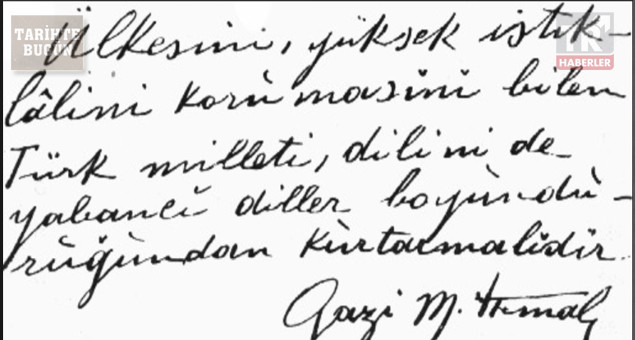 TARİHTE
BUGÜN
TR
HABERLER
Ülkesini, yüksek istik-
lâlini korumasını bilen
Türk milleti, dilini de
yabancı diller boyundu-
ruğundan kurtarmalıdır
Gazi M. Kemal